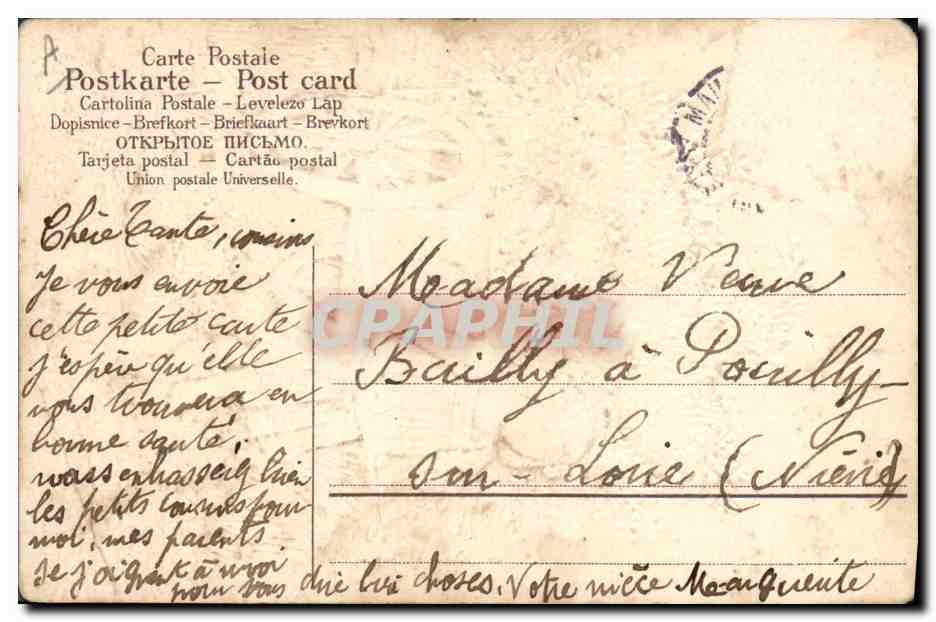 A
Carte Postale
Postkarte — Post card
Cartolina Postale – Levelező Láp
Dopisnice – Brefkort – Briefkaart – Brevkort
ОТКРЫТОЕ ПИСЬМО.
Tarjeta postal — Cartão postal
Union postale Universelle.
MAR
Chère Tante, cousins
Je vous envoie
cette petite carte
j'espère qu'elle
vous trouvera en
bonne santé,
bien
les petits cousins pour
moi, mes parents
se joignent à moi
pour vous dire bien choses. Votre nièce Marguerite
Madame Veuve
Bailly à Pouilly-
sur-Loire (Nièvre)
CPAPHIL